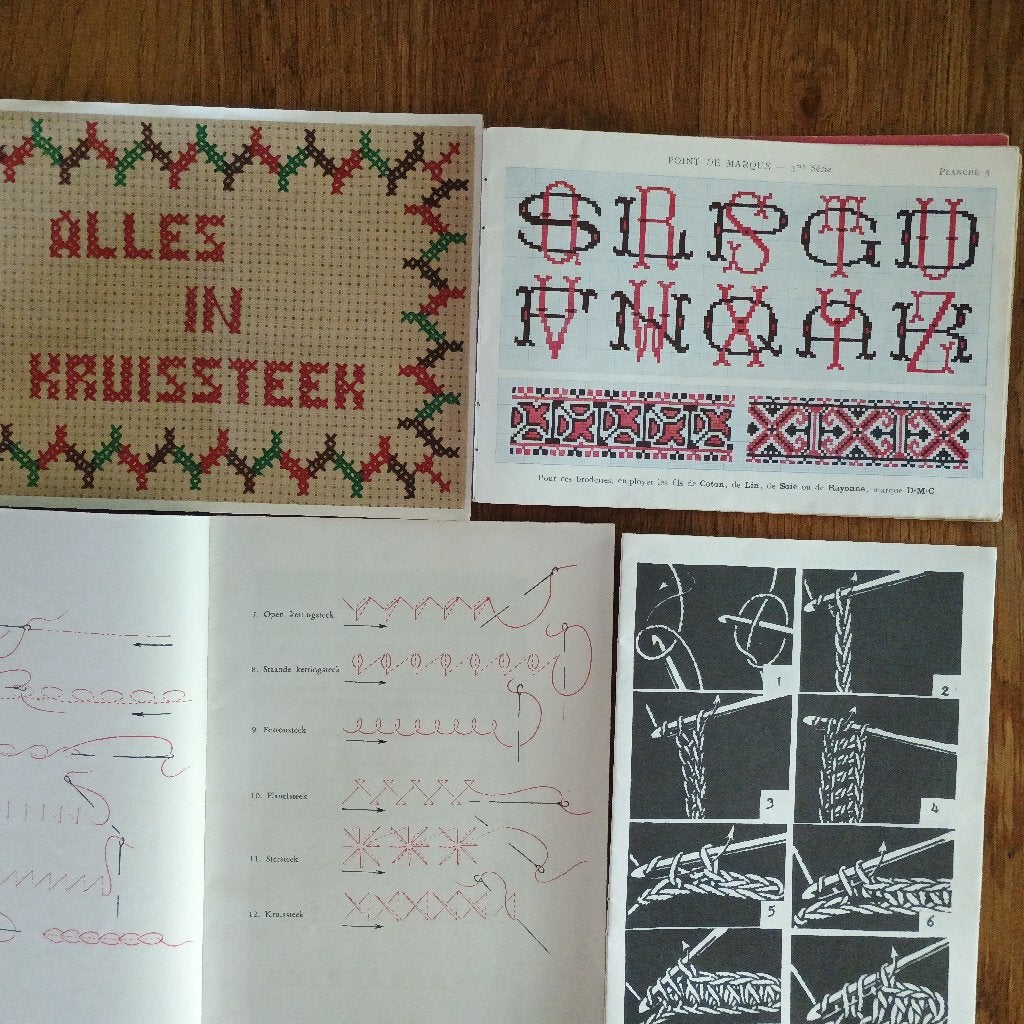 ALLES
IN
KRUISSTEEK
POINT DE MARQUE — 3me Série
PLANCHE 8
Pour ces broderies, employez les fils de Coton, de Lin, de Soie ou de Rayonne, marque D·M·C
7. Open kettingsteek
8. Staande kettingsteek
9. Festonsteek
10. Flanelsteek
11. Stersteek
12. Kruissteek
1
2
3
4
5
6